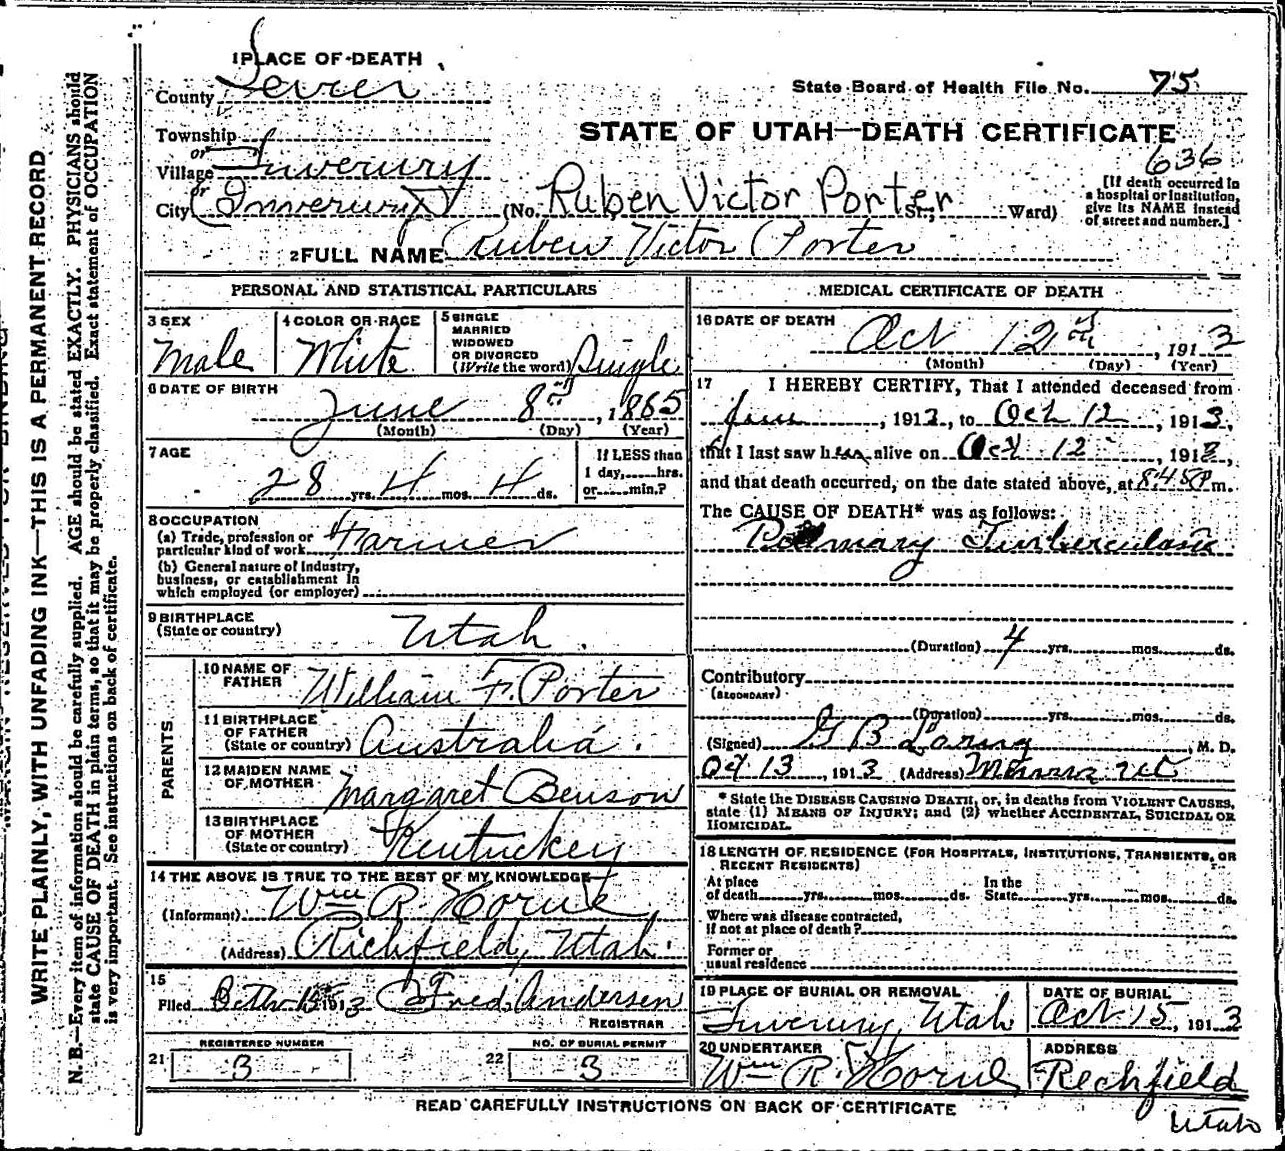 1 PLACE OF DEATH
County Sevier
State Board of Health File No. 75
Township
or
Village Inverury
or
City (Inverury)
STATE OF UTAH—DEATH CERTIFICATE
636
(No. Ruben Victor Porter St.; Ward)
[If death occurred in
a hospital or institution,
give its NAME instead
of street and number.]
2 FULL NAME Ruben Victor Porter
PERSONAL AND STATISTICAL PARTICULARS
3 SEX
Male
4 COLOR OR RACE
White
5 SINGLE
MARRIED
WIDOWED
OR DIVORCED
(Write the word) Single
6 DATE OF BIRTH
June 8th, 1885
(Month) (Day) (Year)
7 AGE
28 yrs. 4 mos. 4 ds.
If LESS than
1 day, hrs.
or min.?
8 OCCUPATION
(a) Trade, profession or
particular kind of work Farmer
(b) General nature of Industry,
business, or establishment in
which employed (or employer)
9 BIRTHPLACE
(State or country) Utah
PARENTS
10 NAME OF
FATHER William F. Porter
11 BIRTHPLACE
OF FATHER
(State or country) Australia.
12 MAIDEN NAME
OF MOTHER Margaret Benson
13 BIRTHPLACE
OF MOTHER
(State or country) Kentuckey
14 THE ABOVE IS TRUE TO THE BEST OF MY KNOWLEDGE
(Informant) Wm R. Horne
(Address) Richfield, Utah.
15
Filed Octr 1913 Fred Andersen
REGISTRAR
21 REGISTERED NUMBER
3
22 NO. OF BURIAL PERMIT
3
MEDICAL CERTIFICATE OF DEATH
16 DATE OF DEATH
Oct 12th, 1913
(Month) (Day) (Year)
17 I HEREBY CERTIFY, That I attended deceased from
June, 191, to Oct 12, 1913,
that I last saw him alive on Oct 12, 1913,
and that death occurred, on the date stated above, at 8:45 P m.
The CAUSE OF DEATH* was as follows:
(Duration) 4 yrs. mos. ds.
Contributory
(SECONDARY)
(Duration) yrs. mos. ds.
(Signed) G B Loring, M. D.
Oct 13, 1913 (Address) Monroe Ut
* State the DISEASE CAUSING DEATH, or, in deaths from VIOLENT CAUSES,
state (1) MEANS OF INJURY; and (2) whether ACCIDENTAL, SUICIDAL OR
HOMICIDAL.
18 LENGTH OF RESIDENCE (FOR HOSPITALS, INSTITUTIONS, TRANSIENTS, OR
RECENT RESIDENTS)
At place
of death yrs. mos. ds.
In the
State yrs. mos. ds.
Where was disease contracted,
if not at place of death?
Former or
usual residence
19 PLACE OF BURIAL OR REMOVAL
Inverury, Utah
DATE OF BURIAL
Oct 15, 1913
20 UNDERTAKER
Wm R. Horne
ADDRESS
Richfield
Utah
READ CAREFULLY INSTRUCTIONS ON BACK OF CERTIFICATE
WRITE PLAINLY, WITH UNFADING INK—THIS IS A PERMANENT RECORD.
N. B.—Every item of information should be carefully supplied. AGE should be stated EXACTLY. PHYSICIANS should
state CAUSE OF DEATH in plain terms, so that it may be properly classified. Exact statement of OCCUPATION
is very important. See instructions on back of certificate.